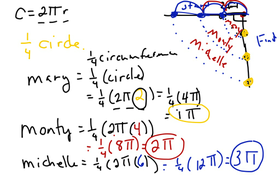 C = 2πr
1/4 circle.
1/4 circumference
mary = 1/4 (circle)
= 1/4 (2π 2) = 1/4 (4π)
= 1π
monty = 1/4 (2π(4))
= 1/4 (8π) = 2π
michelle = 1/4 (2π(6)) = 1/4 (12π) = 3π
Start
Mary
Monty
Michelle
Finish